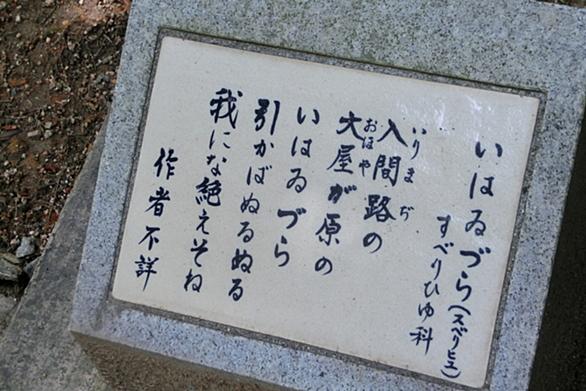 いはゐづら(スベリヒユ)
すべりひゆ科
入間路の
いりまぢ
大屋が原の
おほや
いはゐづら
引かばぬるぬる
我にな絶えそね
作者不詳